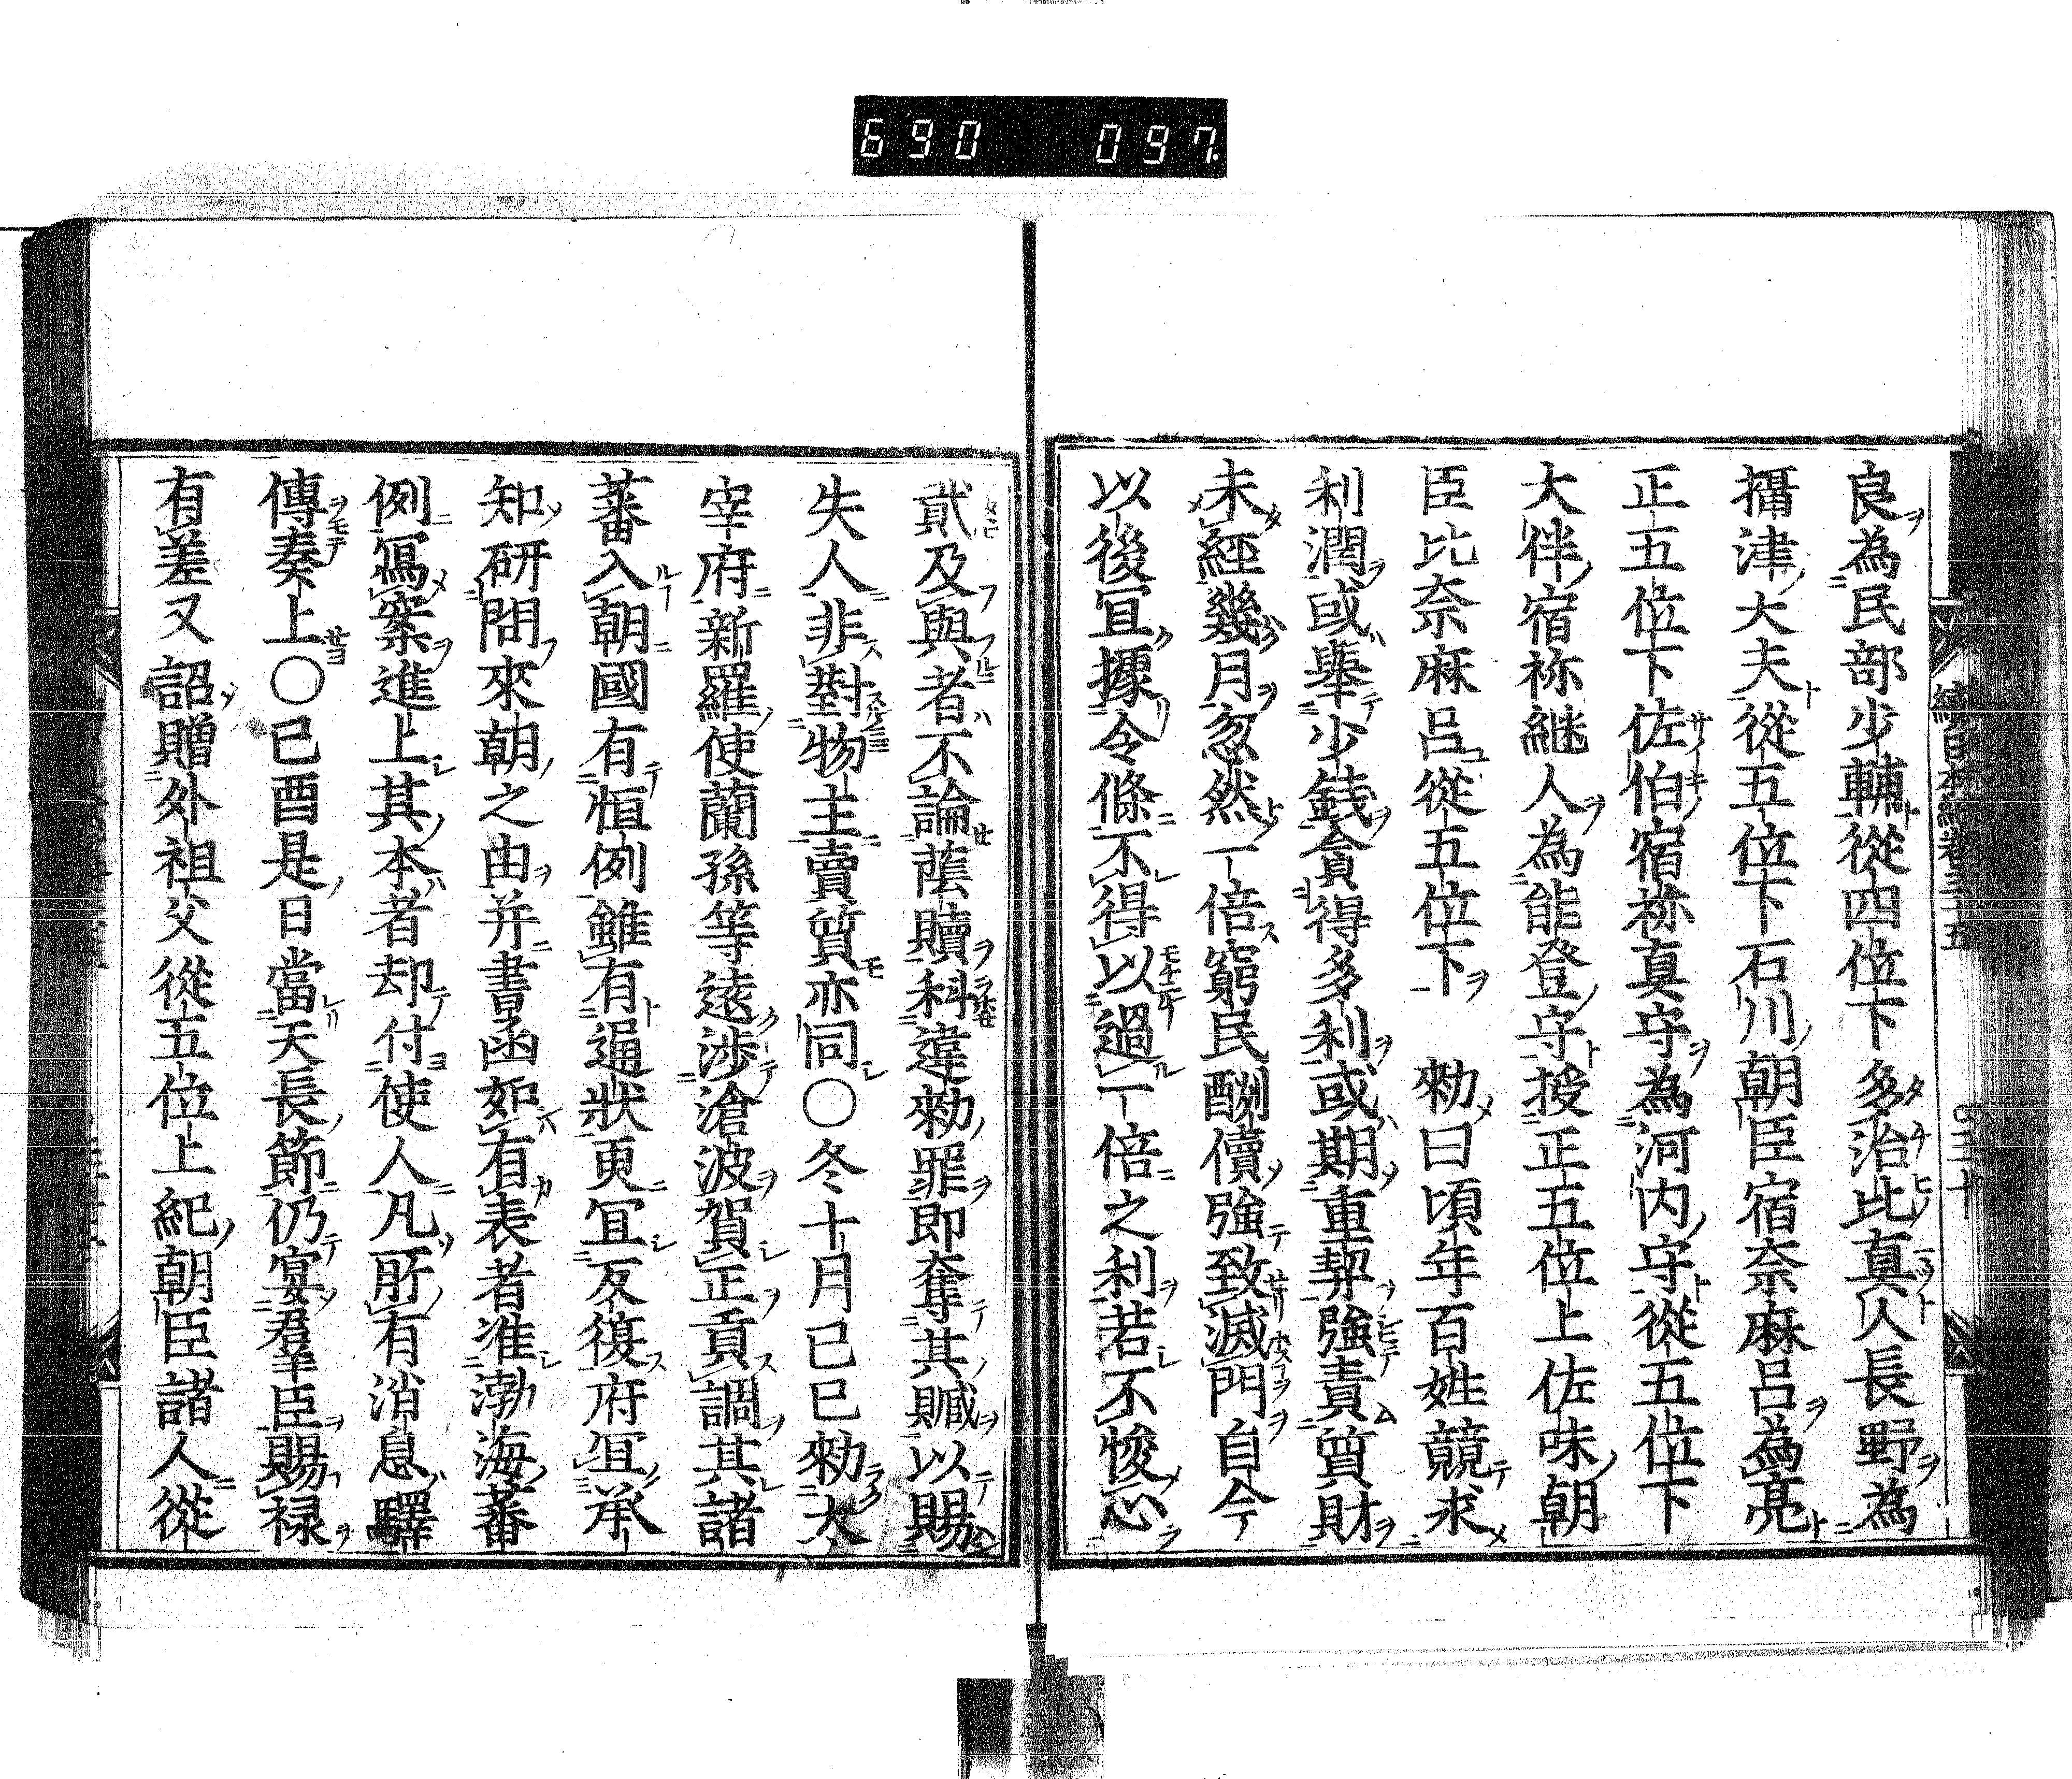 690 097
良為民部少輔從四位下多治比真人長野為
攝津大夫從五位下石川朝臣宿奈麻呂為亮
正五位下佐伯宿祢真守為河内守從五位下
大伴宿祢継人為能登守授正五位上佐味朝
臣比奈麻呂從五位下 勑曰頃年百姓競求
利潤或舉少錢貪得多利或期重契強責質財
未經幾月忽然一倍窮民酬償強致滅門自今
以後冝據令條不得以過一倍之利若不悛心
貮及與者不論蔭贖科違勑罪即奪其贓以賜
失人非對物主賣質亦同〇冬十月己巳勑大
宰府新羅使蘭孫等遠渉滄波賀正貢調其諸
蕃入朝國有恒例雖有通狀更冝反復府冝承
知研問來朝之由并書函如有表者准渤海蕃
例寫案進上其本者却付使人凡所有消息驛
傳奏上〇己酉是日當天長節仍宴羣臣賜禄
有差又詔贈外祖父從五位上紀朝臣諸人從
續日本紀卷三十五